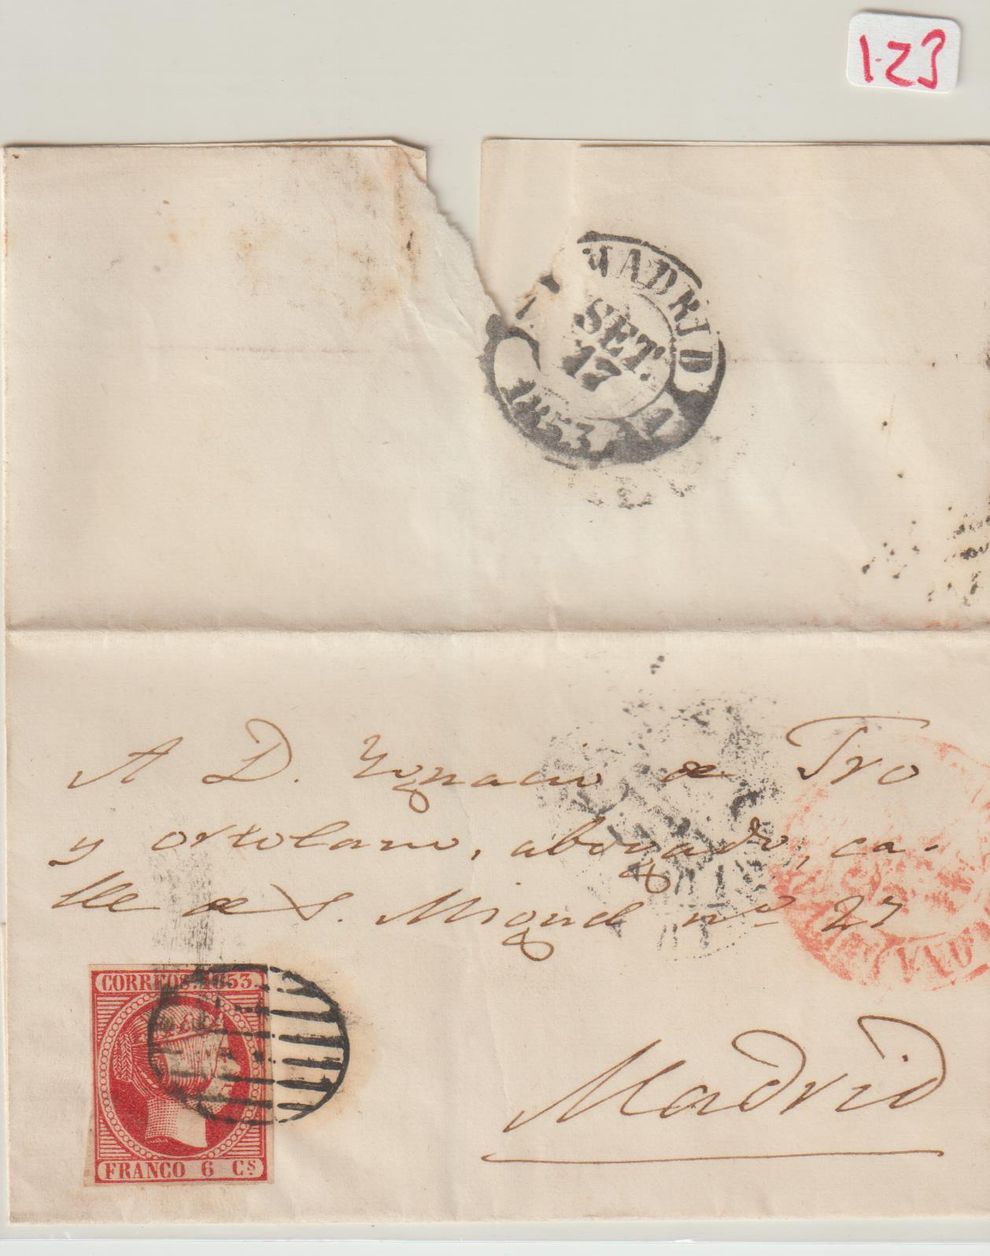 1-23
MADRID
SET.
17
1853
A D. Ygnacio de Tro
y ortolano, abogado, ca-
lle de S. Miguel nº 27
CORREOS. 1853
FRANCO 6 CS
Madrid